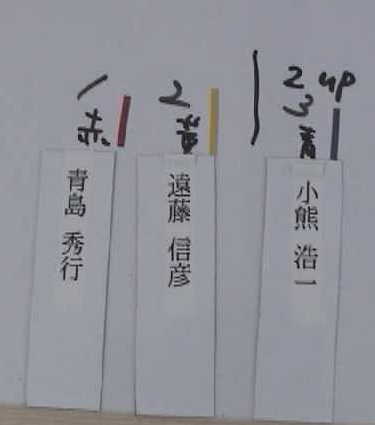 1
赤
青島 秀行
2
黄
遠藤 信彦
2up
3
青
小熊 浩一